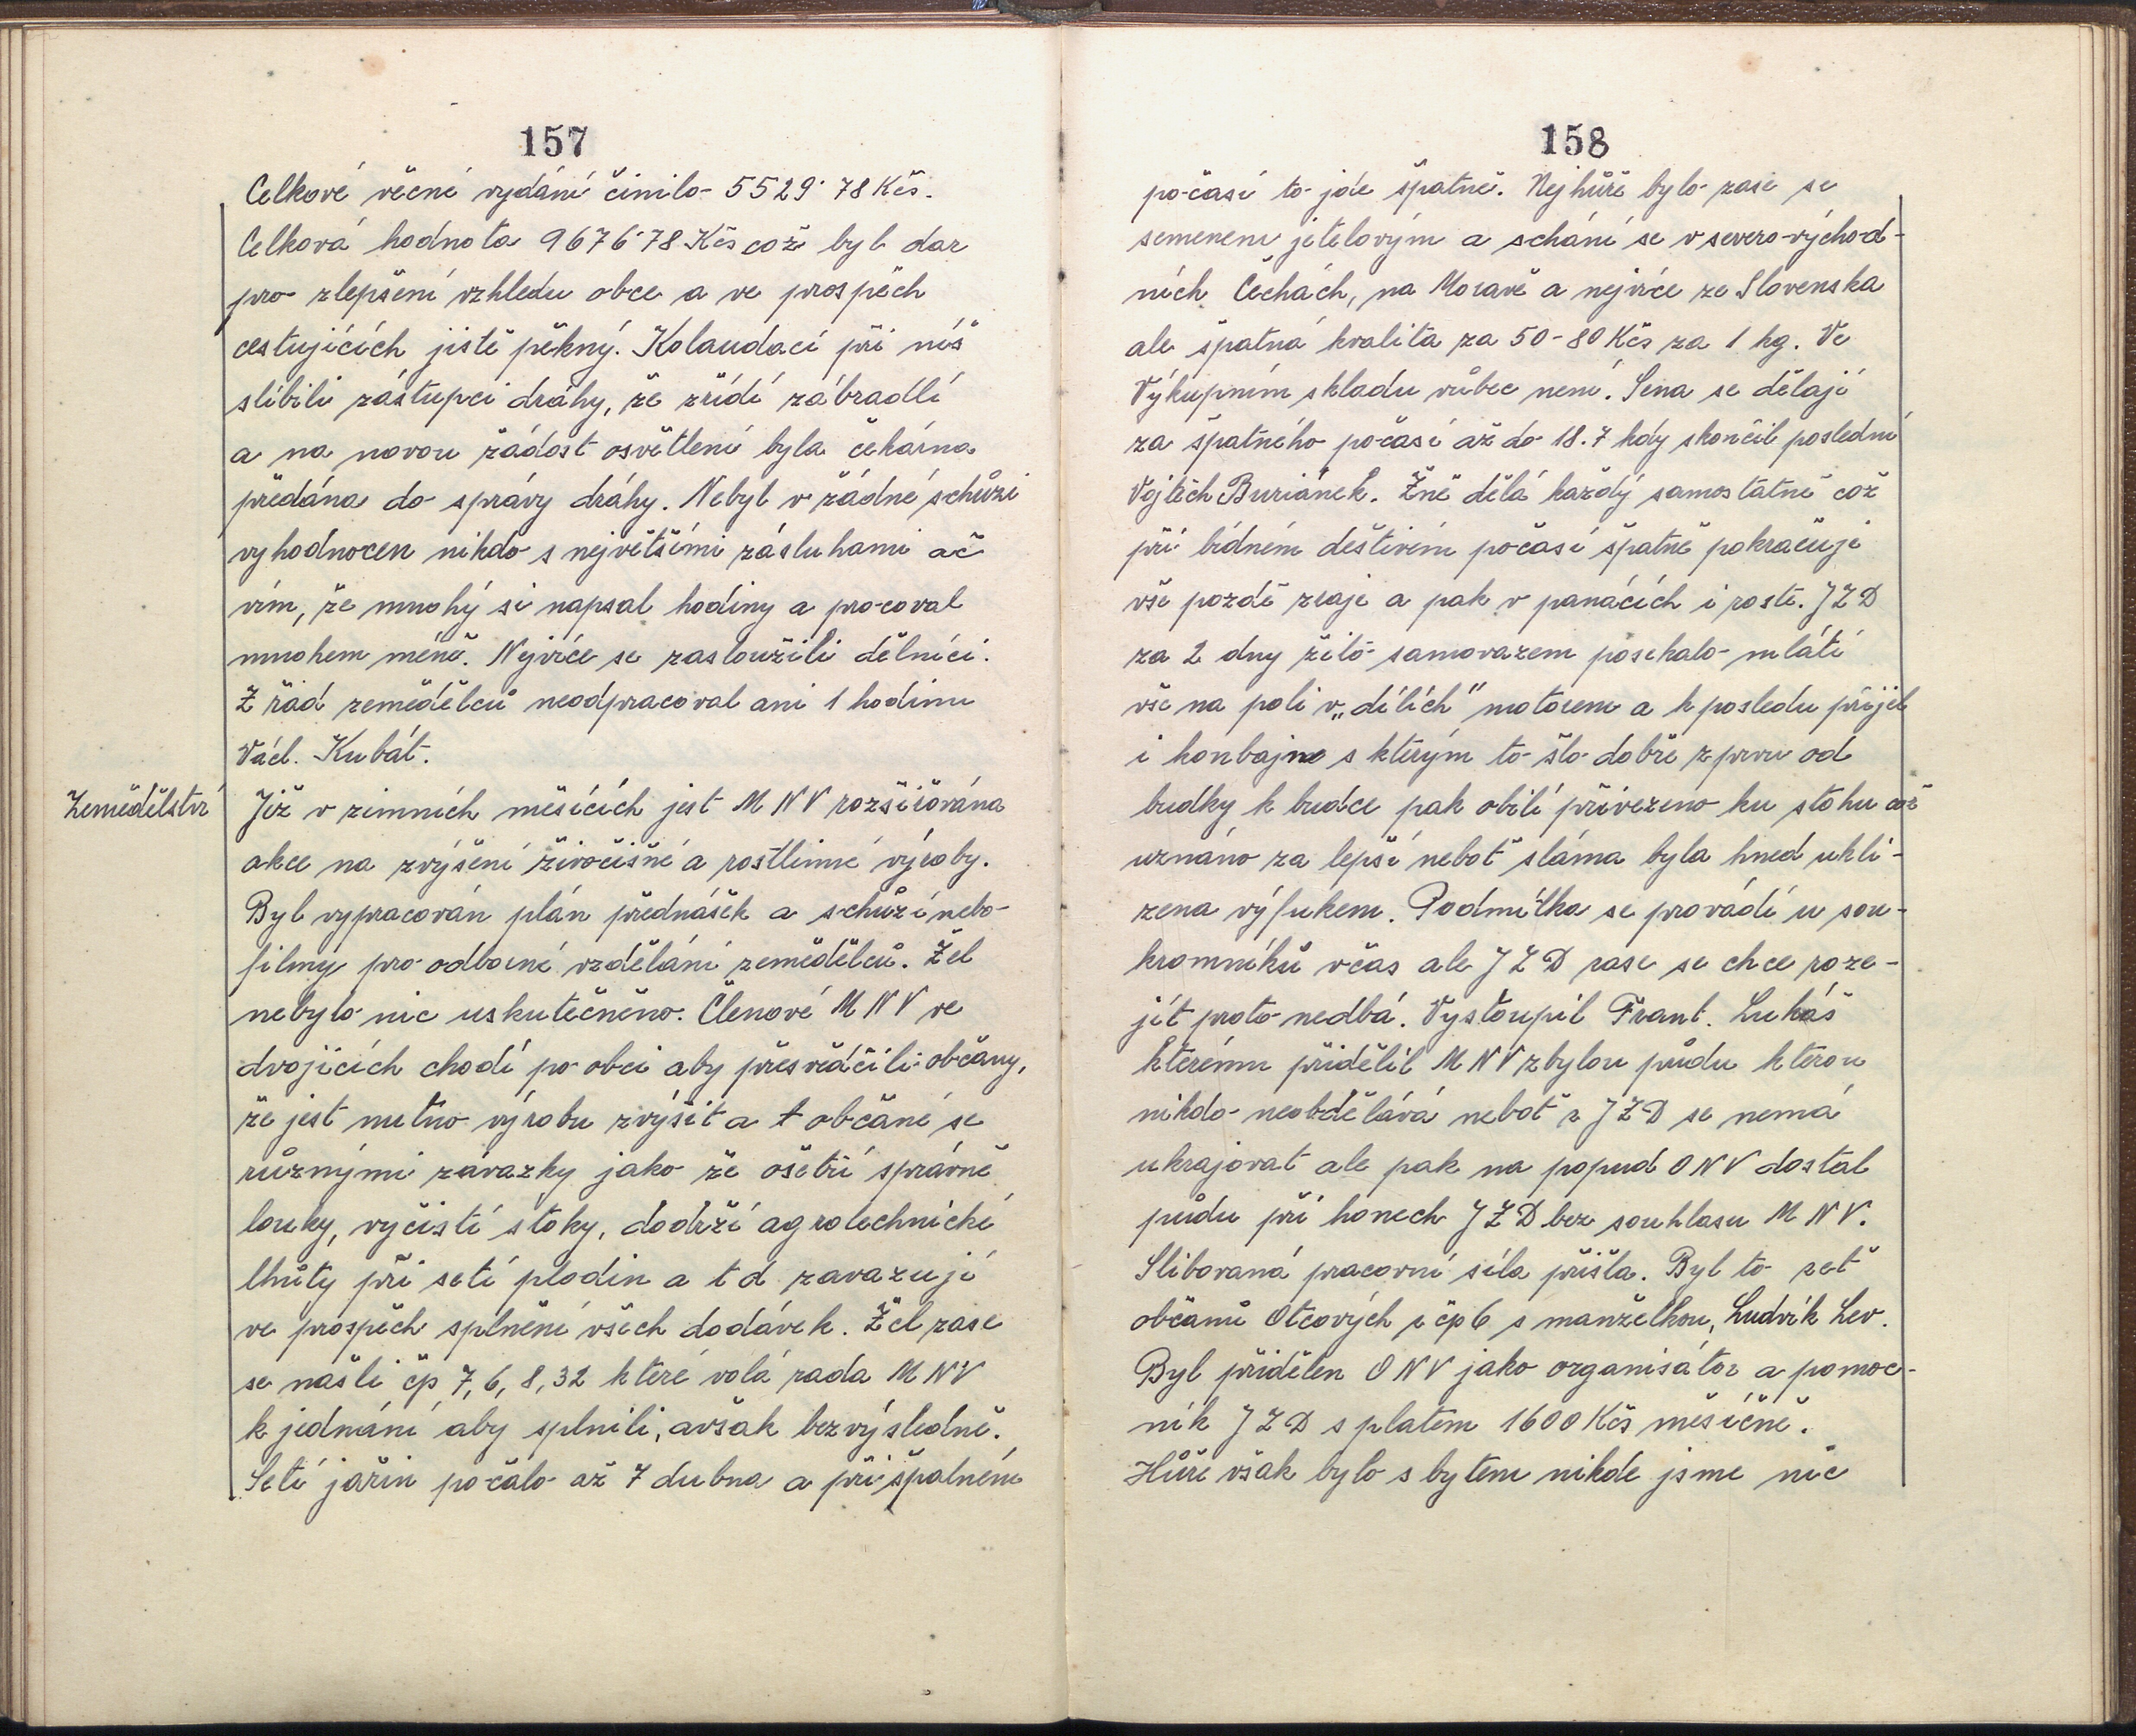 157
Celkové věcné vydání činilo 5529·78 Kčs.
Celková hodnota 9676·78 Kčs což byl dar
pro zlepšení vzhledu obce a ve prospěch
cestujících jistě pěkný. Kolaudaci při níž
slíbili zástupci dráhy, že zřídí zábradlí
a na novou žádost osvětlení byla čekárna
předána do správy dráhy. Nebyl v žádné schůzi
vyhodnocen nikdo s největšími zásluhami ač
vím, že mnohý si napsal hodiny a pracoval
mnohem méně. Nejvíce se zasloužili dělníci.
Z řad zemědělců neodpracoval ani 1 hodinu
Václ. Kubát.
Zemědělství
Již v zimních měsících jest M N V rozšiřována
akce na zvýšení živočišné a rostlinné výroby.
Byl vypracován plán přednášek a schůzí nebo
filmy pro odborné vzdělání zemědělců. Žel
nebylo nic uskutečněno. Členové M N V ve
dvojicích chodí po obci aby přesvědčili občany,
že jest nutno výrobu zvýšit a t občané se
různými závazky jako že ošetří správně
louky, vyčistí stoky, dodrží agrotechnické
lhůty při setí plodin a t d zavazují
ve prospěch splnění všech dodávek. Žel zase
se našli čp 7, 6, 8, 32 které volá rada M N V
k jednání aby splnili, avšak bezvýsledně.
Setí jařin počalo až 7 dubna a při špatném
158
počasí to jde špatně. Nejhůře bylo zase se
semenem jetelovým a shání se v severo-východ-
ních Čechách, na Moravě a nejvíce ze Slovenska
ale špatná kvalita za 50-80 Kčs za 1 kg. Ve
Výkupním skladu vůbec není. Sena se dělají
za špatného počasí až do 18.7 kdy skončil poslední
Vojtěch Buriánek. Žně dělá každý samostatně což
při bídném deštivém počasí špatně pokračuje
vše pozdě zraje a pak v panácích i roste. J Z D
za 2 dny žito samovazem posekalo mlátí
vše na poli v „dílích" motorem a k posledu přijel
i konbajno s kterým to šlo dobře zprvu od
budky k budce pak obilí přivezeno ku stohu což
uznáno za lepší neboť sláma byla hned ukli-
zena výfukem. Podmítka se provádí u sou-
kromníků včas ale J Z D zase se chce roze-
jít proto nedbá. Vystoupil Frant. Lukáš
kterému přidělil M N V zbylou půdu kterou
nikdo neobdělává neboť z J Z D se nemá
ukrajovat ale pak na popud O N V dostal
půdu při honech J Z D bez souhlasu M N V.
Slibovaná pracovní síla přišla. Byl to zeť
občanů Otcových z čp 6 s manželkou, Ludvík Lev.
Byl přidělen O N V jako organisátor a pomoc-
ník J Z D s platem 1600 Kčs měsíčně.
Hůře však bylo s bytem nikde jsme nic